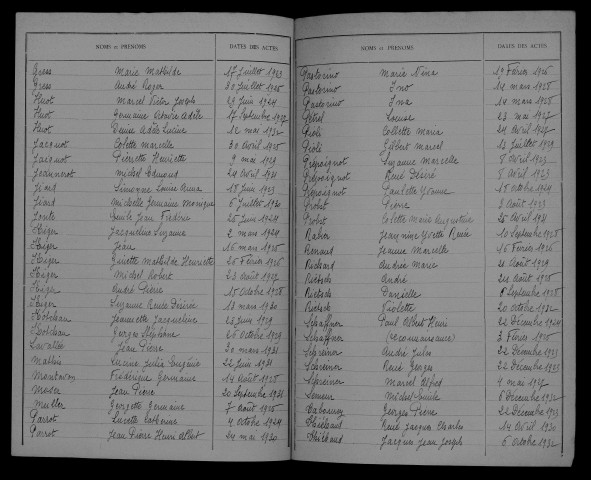 NOMS et PRÉNOMS DATES DES ACTES
Gress Marie Mathilde 17 Juillet 1923
Gress André Roger 30 Juillet 1925
Huot Marcel Victor Joseph 29 Juin 1924
Huot Germaine Adèle 17 Septembre 1927
Huot Denise Adèle Lucine 12 mai 1932
Jacquot Colette marcelle 30 Avril 1925
Jacquot Pierrette Henriette 9 mai 1929
Jeannerot michel Edmond 24 Avril 1931
Jiard Simonne Louise Anna 18 Juin 1923
Jiard michelle Germaine Monique 6 Juillet 1930
Emile Jean 25 Juin 1924
Jacqueline Suzanne 2 mars 1924
Jean 16 mars 1925
Mathilde Henriette 25 Février 1926
Michel Robert 23 Août 1927
André Pierre 15 Octobre 1928
Suzanne Renée Désirée 18 mars 1930
Jeannette Jacqueline 23 Juin 1929
Georges Stéphane 26 Octobre 1929
Lavallée Jean Pierre 20 mars 1931
Mathis Lucine Julia Eugénie 22 Juin 1931
Montavon Frédérique Germaine 14 Août 1925
Moser Jean Pierre 20 Septembre 1931
Muller Georgette Germaine 7 Août 1925
Parrot Lucette Catherine 4 Octobre 1924
Parrot Jean Pierre Henri Albert 24 mai 1930
NOMS et PRÉNOMS DATES DES ACTES
Pastorino Marie Nina 19 Février 1926
Pastorino Ino 14 mars 1928
Pastorino Ina 14 mars 1928
Pétrel Louise 23 mai 1927
Pioli Colette Maria 24 Avril 1927
Pioli Gilbert Marcel 12 Juillet 1929
Suzanne Marcelle 8 Avril 1923
René Désiré 8 Avril 1923
Paulette Yvonne 15 Octobre 1924
Probst Pierre 8 Août 1923
Probst Colette Marie Augustine 25 Avril 1931
Rabier Jeannine Yvette Renée 10 Septembre 1928
Renaud Jeanne Marcelle 16 Février 1926
Richard Andrée Marie 21 Août 1929
Rietsch André 24 Août 1925
Rietsch Danielle 8 Septembre 1928
Rietsch Violette 20 Octobre 1932
Schaffner Paul Albert Henri 22 Décembre 1924
Schaffner (reconnaissance) 3 Février 1930
André Jules 22 Décembre 1923
René Georges 22 Décembre 1925
Marcel Alfred 4 mai 1927
Michel Emile 6 Décembre 1932
Georges Pierre 22 Décembre 1923
Thiebaud René Jacques Charles 14 Avril 1930
Thiebaud Jacques Jean Joseph 6 Octobre 1932